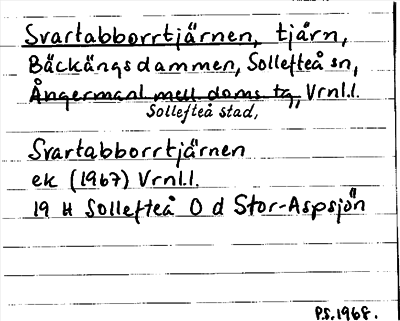 Svartabborrtjärnen, tjärn,
Bäckängsdammen, Sollefteå sn,
Ångermanl. mell. doms tg, Vrnl.l.
Sollefteå stad,
Svartabborrtjärnen
ek (1967) Vrnl.l.
19 H Sollefteå O d Stor-Aspsjön
P.S. 1968.